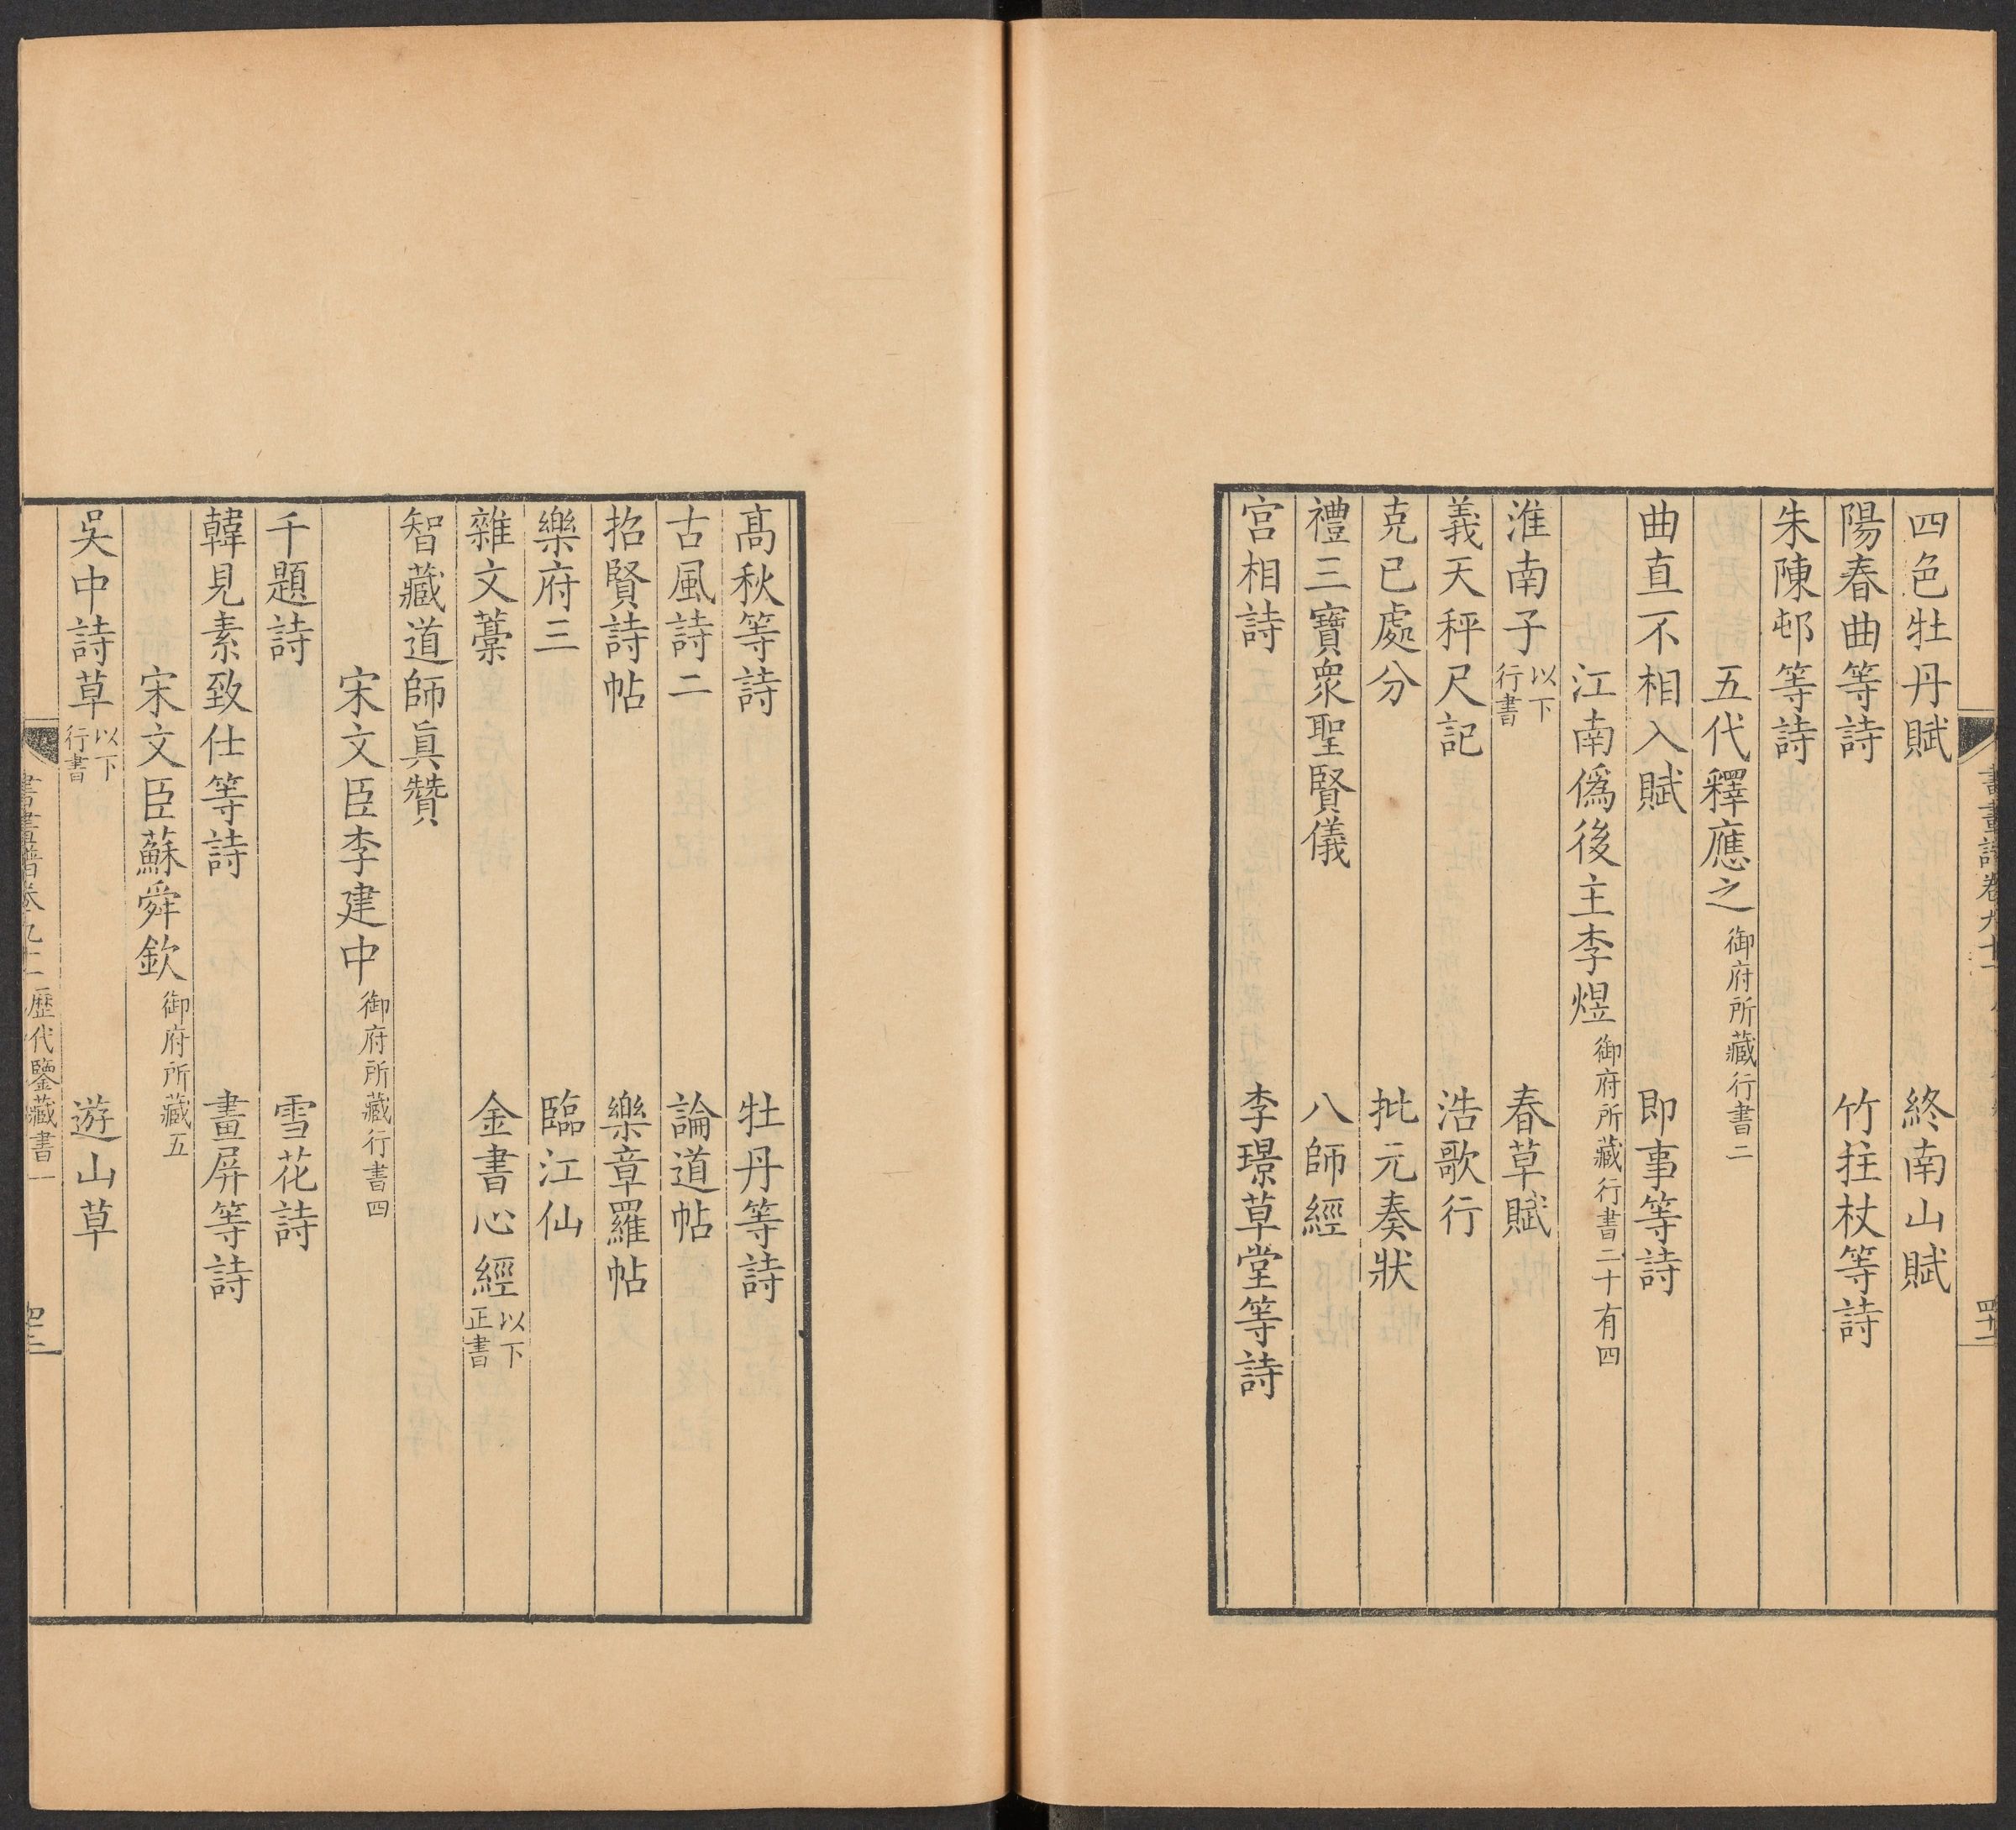 四色牡丹賦　終南山賦
陽春曲等詩　竹拄杖等詩
朱陳邨等詩
五代釋應之御府所藏行書二
曲直不相入賦　即事等詩
江南僞後主李煜御府所藏行書二十有四
淮南子以下行書　春草賦
義天秤尺記　浩歌行
克已處分　批元奏狀
禮三寶衆聖賢儀　八師經
宮相詩　李璟草堂等詩
高秋等詩　牡丹等詩
古風詩二　論道帖
招賢詩帖　樂章羅帖
樂府三　臨江仙
雜文藳　金書心經以下正書
智藏道師眞贊
宋文臣李建中御府所藏行書四
千題詩　雪花詩
韓見素致仕等詩　畫屏等詩
宋文臣蘇舜欽御府所藏五
吳中詩草以下行書　遊山草
書畫譜卷九十一　歷代鑒藏書一